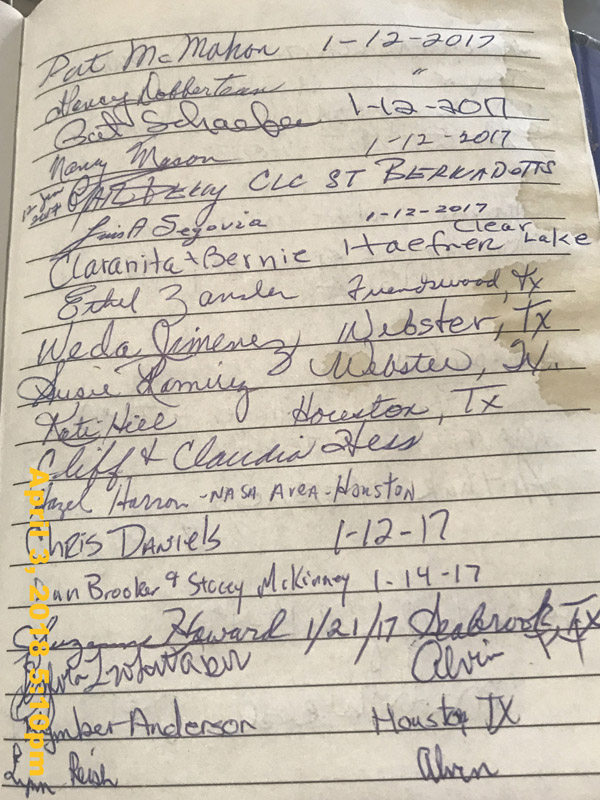 Pat McMahon 1-12-2017
Nancy Dobberteen "
Schaefer 1-12-2017
Nancy Mason 1-12-2017
12 Jan 2017 Pat Kelly CLC ST BERNADOTTS
Luis A Segovia 1-12-2017
Claranita + Bernie Haefner Clear Lake
Ethel Zansler Friendswood, Tx
Weda Jimenez Webster, Tx
Susie Ramirez Webster, Tx.
Kati Hill Houston, Tx
Cliff & Claudia Hess
Hazel Harron - NASA AREA - Houston
Chris Daniels 1-12-17
Brooker & Stacey McKinney 1-14-17
Suzanne Howard 1/21/17 Seabrook, TX
Sylvia Whittaker Alvin TX
Anderson Houston TX
Lynn Reish Alvin
April 3, 2018 5:10pm